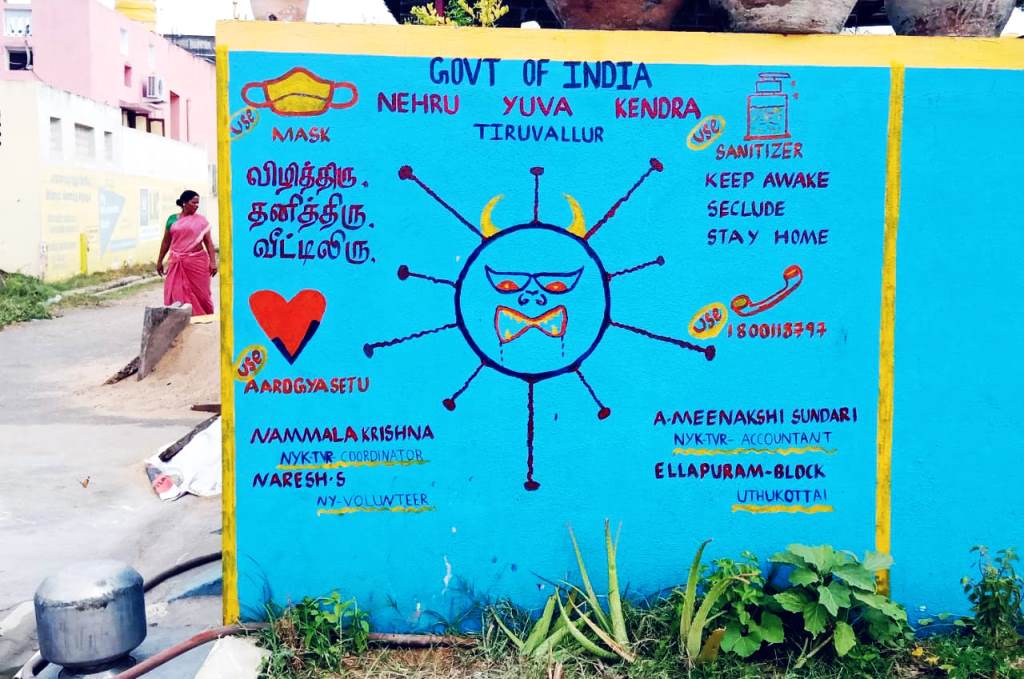 GOVT OF INDIA
NEHRU YUVA KENDRA
TIRUVALLUR
USE
MASK
USE
SANITIZER
விழித்திரு.
தனித்திரு.
வீட்டிலிரு.
KEEP AWAKE
SECLUDE
STAY HOME
USE
AAROGYASETU
USE
1800118797
NAMMALA KRISHNA
NYK-TVR- COORDINATOR
NARESH-S
NY-VOLUNTEER
A-MEENAKSHI SUNDARI
NYK-TVR- ACCOUNTANT
ELLAPURAM-BLOCK
UTHUKOTTAI